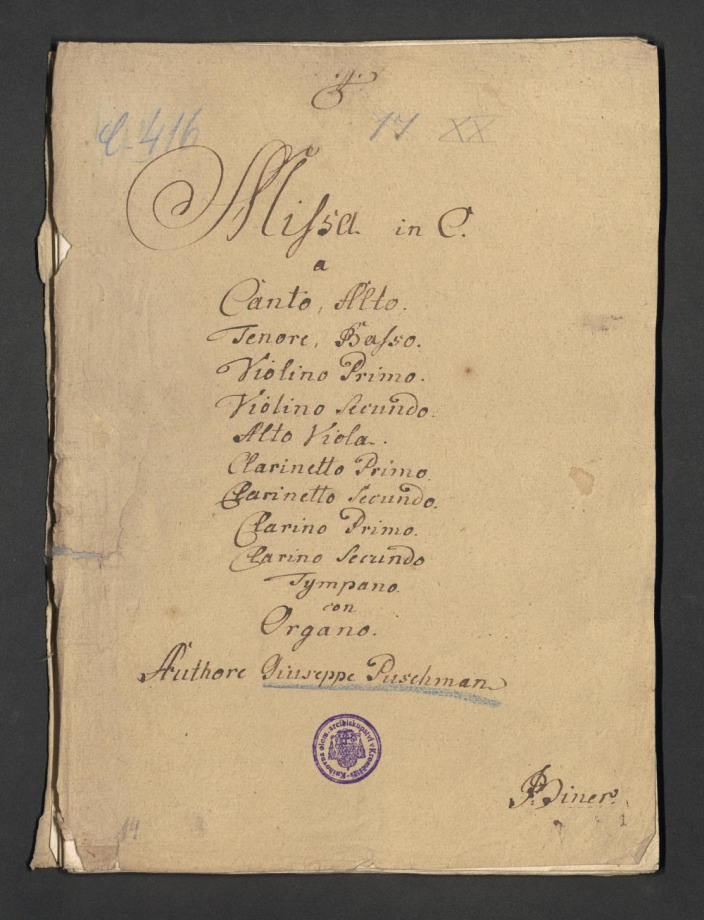 C. 416 14 XX
Missa in C.
a
Canto, Alto.
Tenore, Basso.
Violino Primo.
Violino Secundo.
Alto Viola.
Clarinetto Primo.
Clarinetto Secundo.
Clarino Primo.
Clarino Secundo
Tympano.
con
Organo.
Authore Giuseppe Puschman
Knihovna olom. arcibiskupství v Kroměříži
14
1